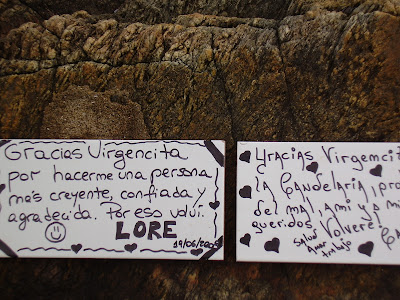 Gracias Virgencita
por hacerme una persona
más creyente, confiada y
agradecida. Por eso volví.
LORE
19/06/2005
Gracias Virgencit
la Candelaria, pro
del mal, a mi y a mi
queridos. Volveré
Salud
Amor
trabajo